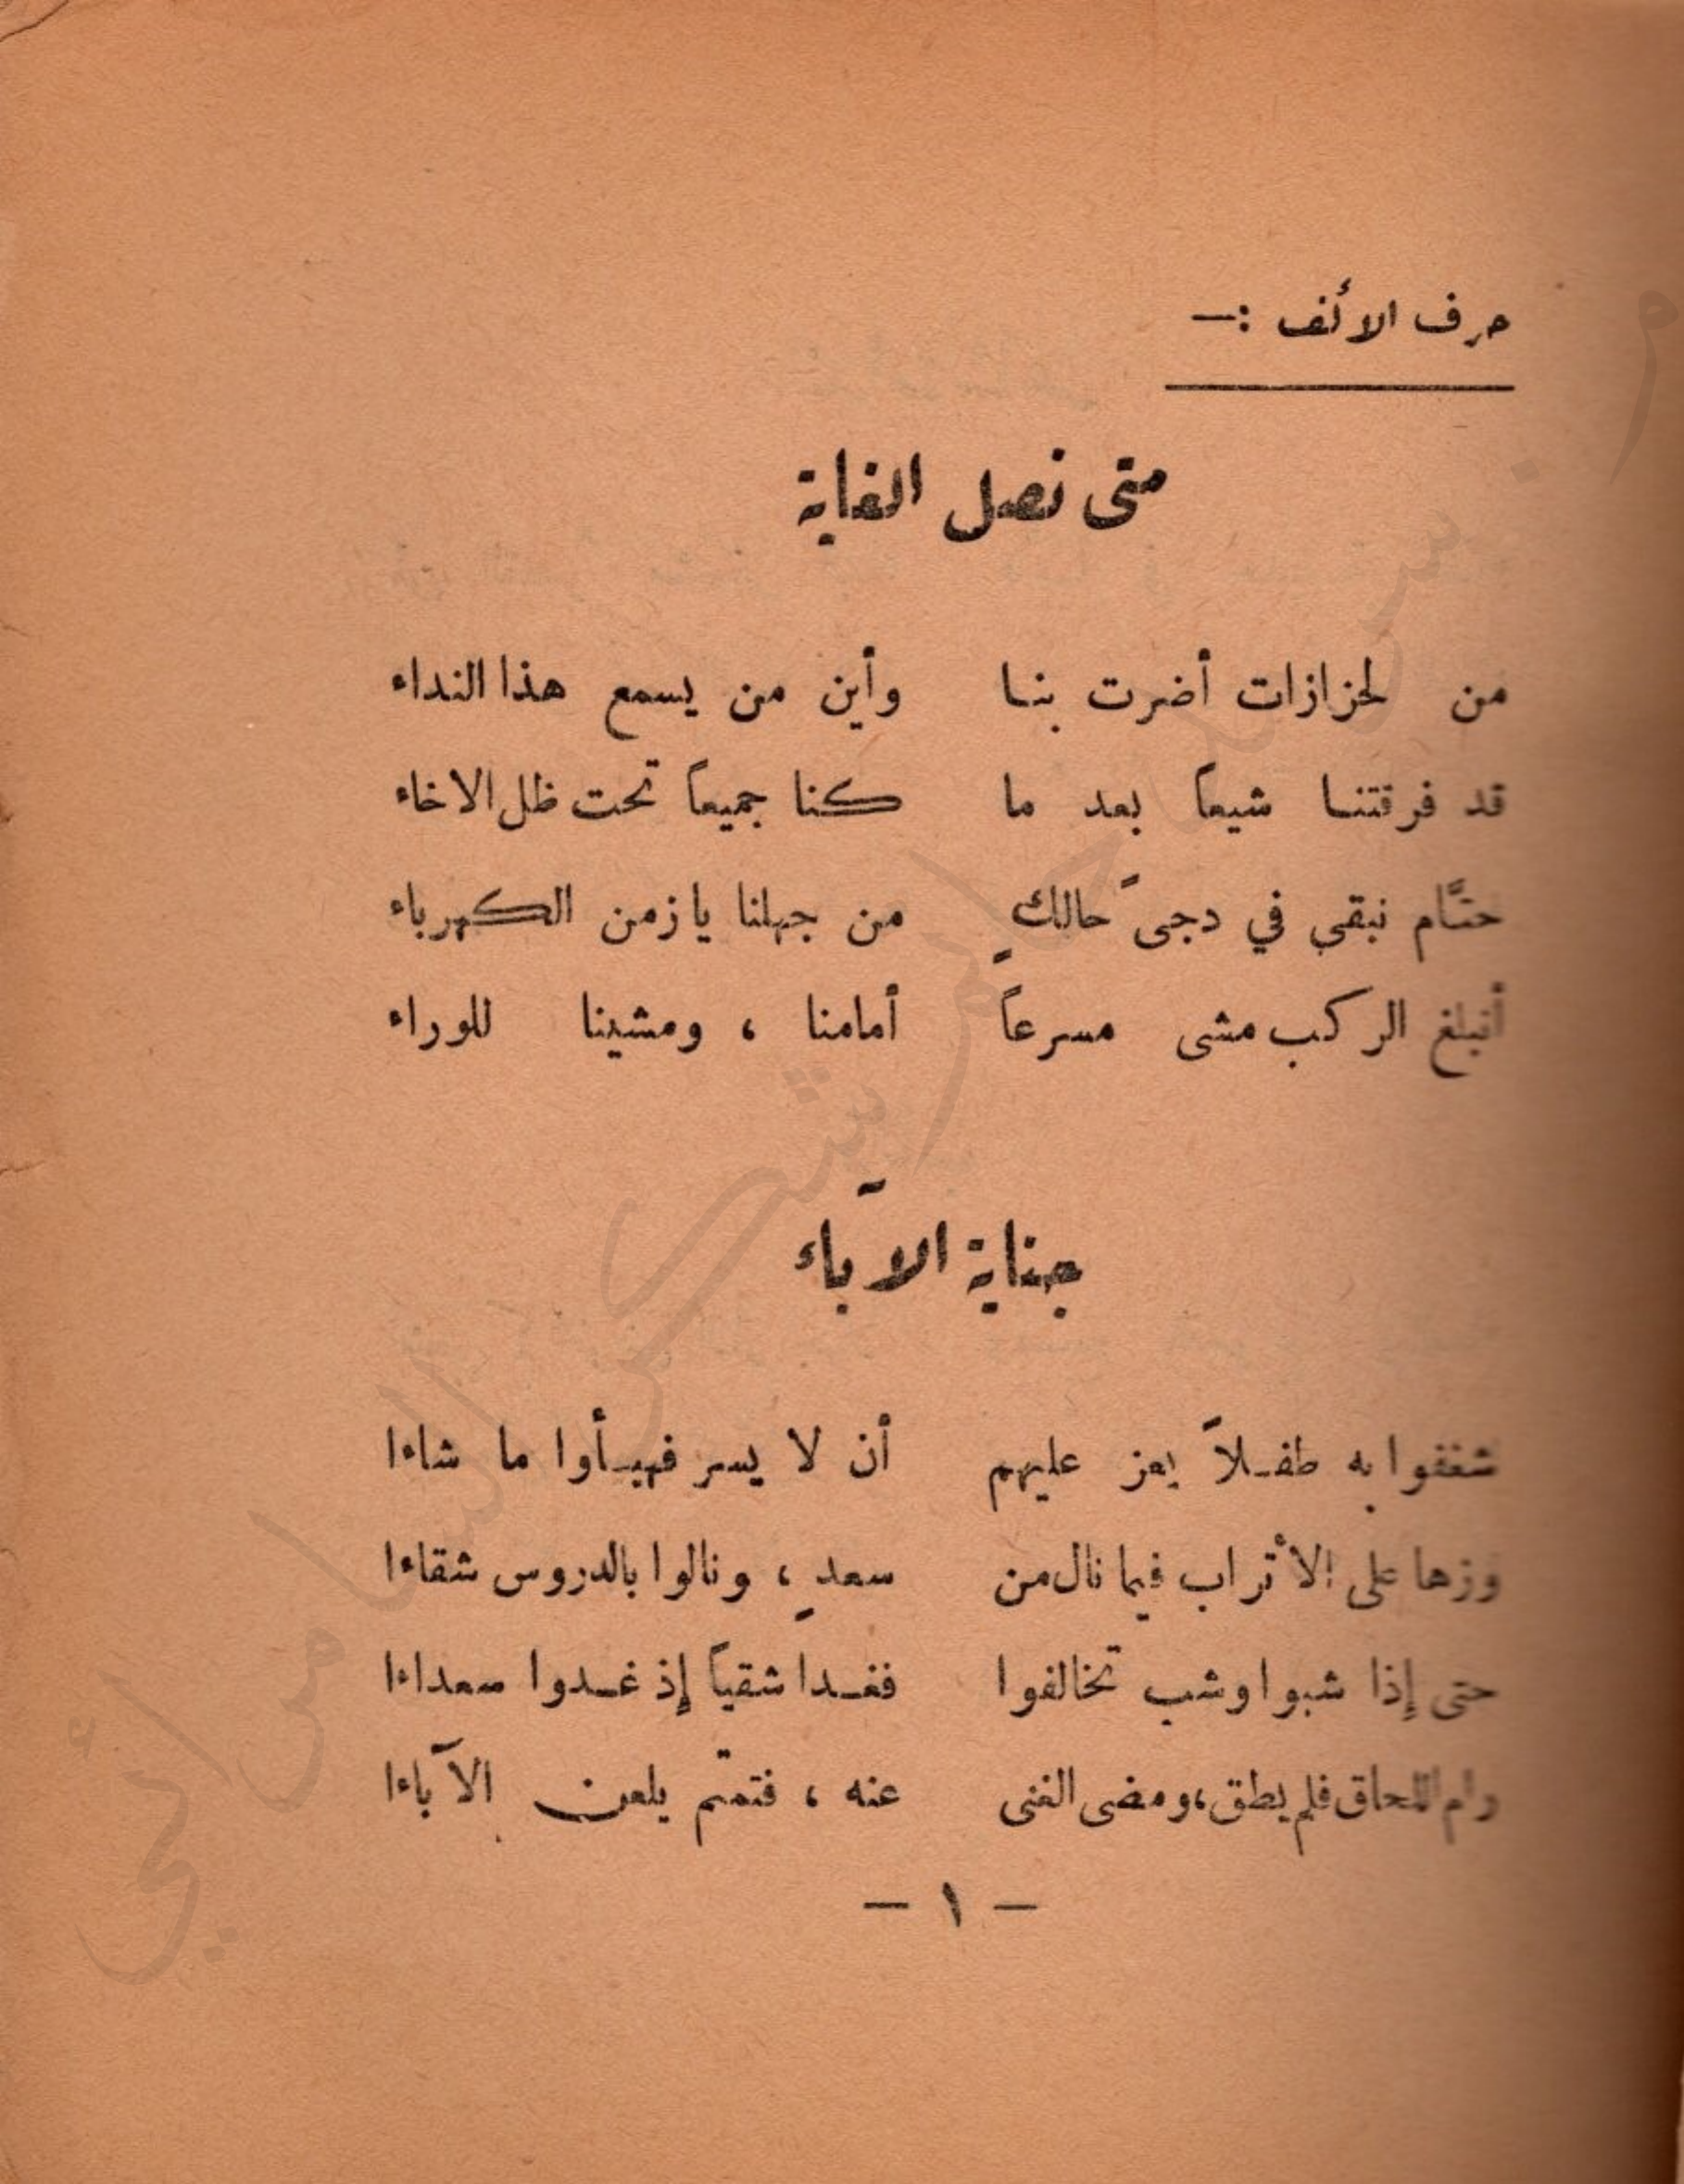 حرف الألف :—
متى نصل الغاية
من لحزازات أضرت بنا وأين من يسمع هذا النداء
قد فرقتنا شيعاً بعد ما كنا جميعاً تحت ظل الاخاء
حتَّام نبقى في دجىً حالكٍ من جهلنا يا زمن الكهرباء
أنبلغ الركب مشى مسرعاً أمامنا ، ومشينا للوراء
جناية الآباء
شغفوا به طفلاً يعز عليهم أن لا يسر فهيأوا ما شاءا
وزها على الأتراب فيما نال من سعدٍ ، ونالوا بالدروس شقاءا
حتى إذا شبوا وشب تخالفوا فغدا شقياً إذ غدوا سعداءا
رام اللحاق فلم يطق، ومضى الغنى عنه ، فتمتم يلعن الآباءا
— ١ —